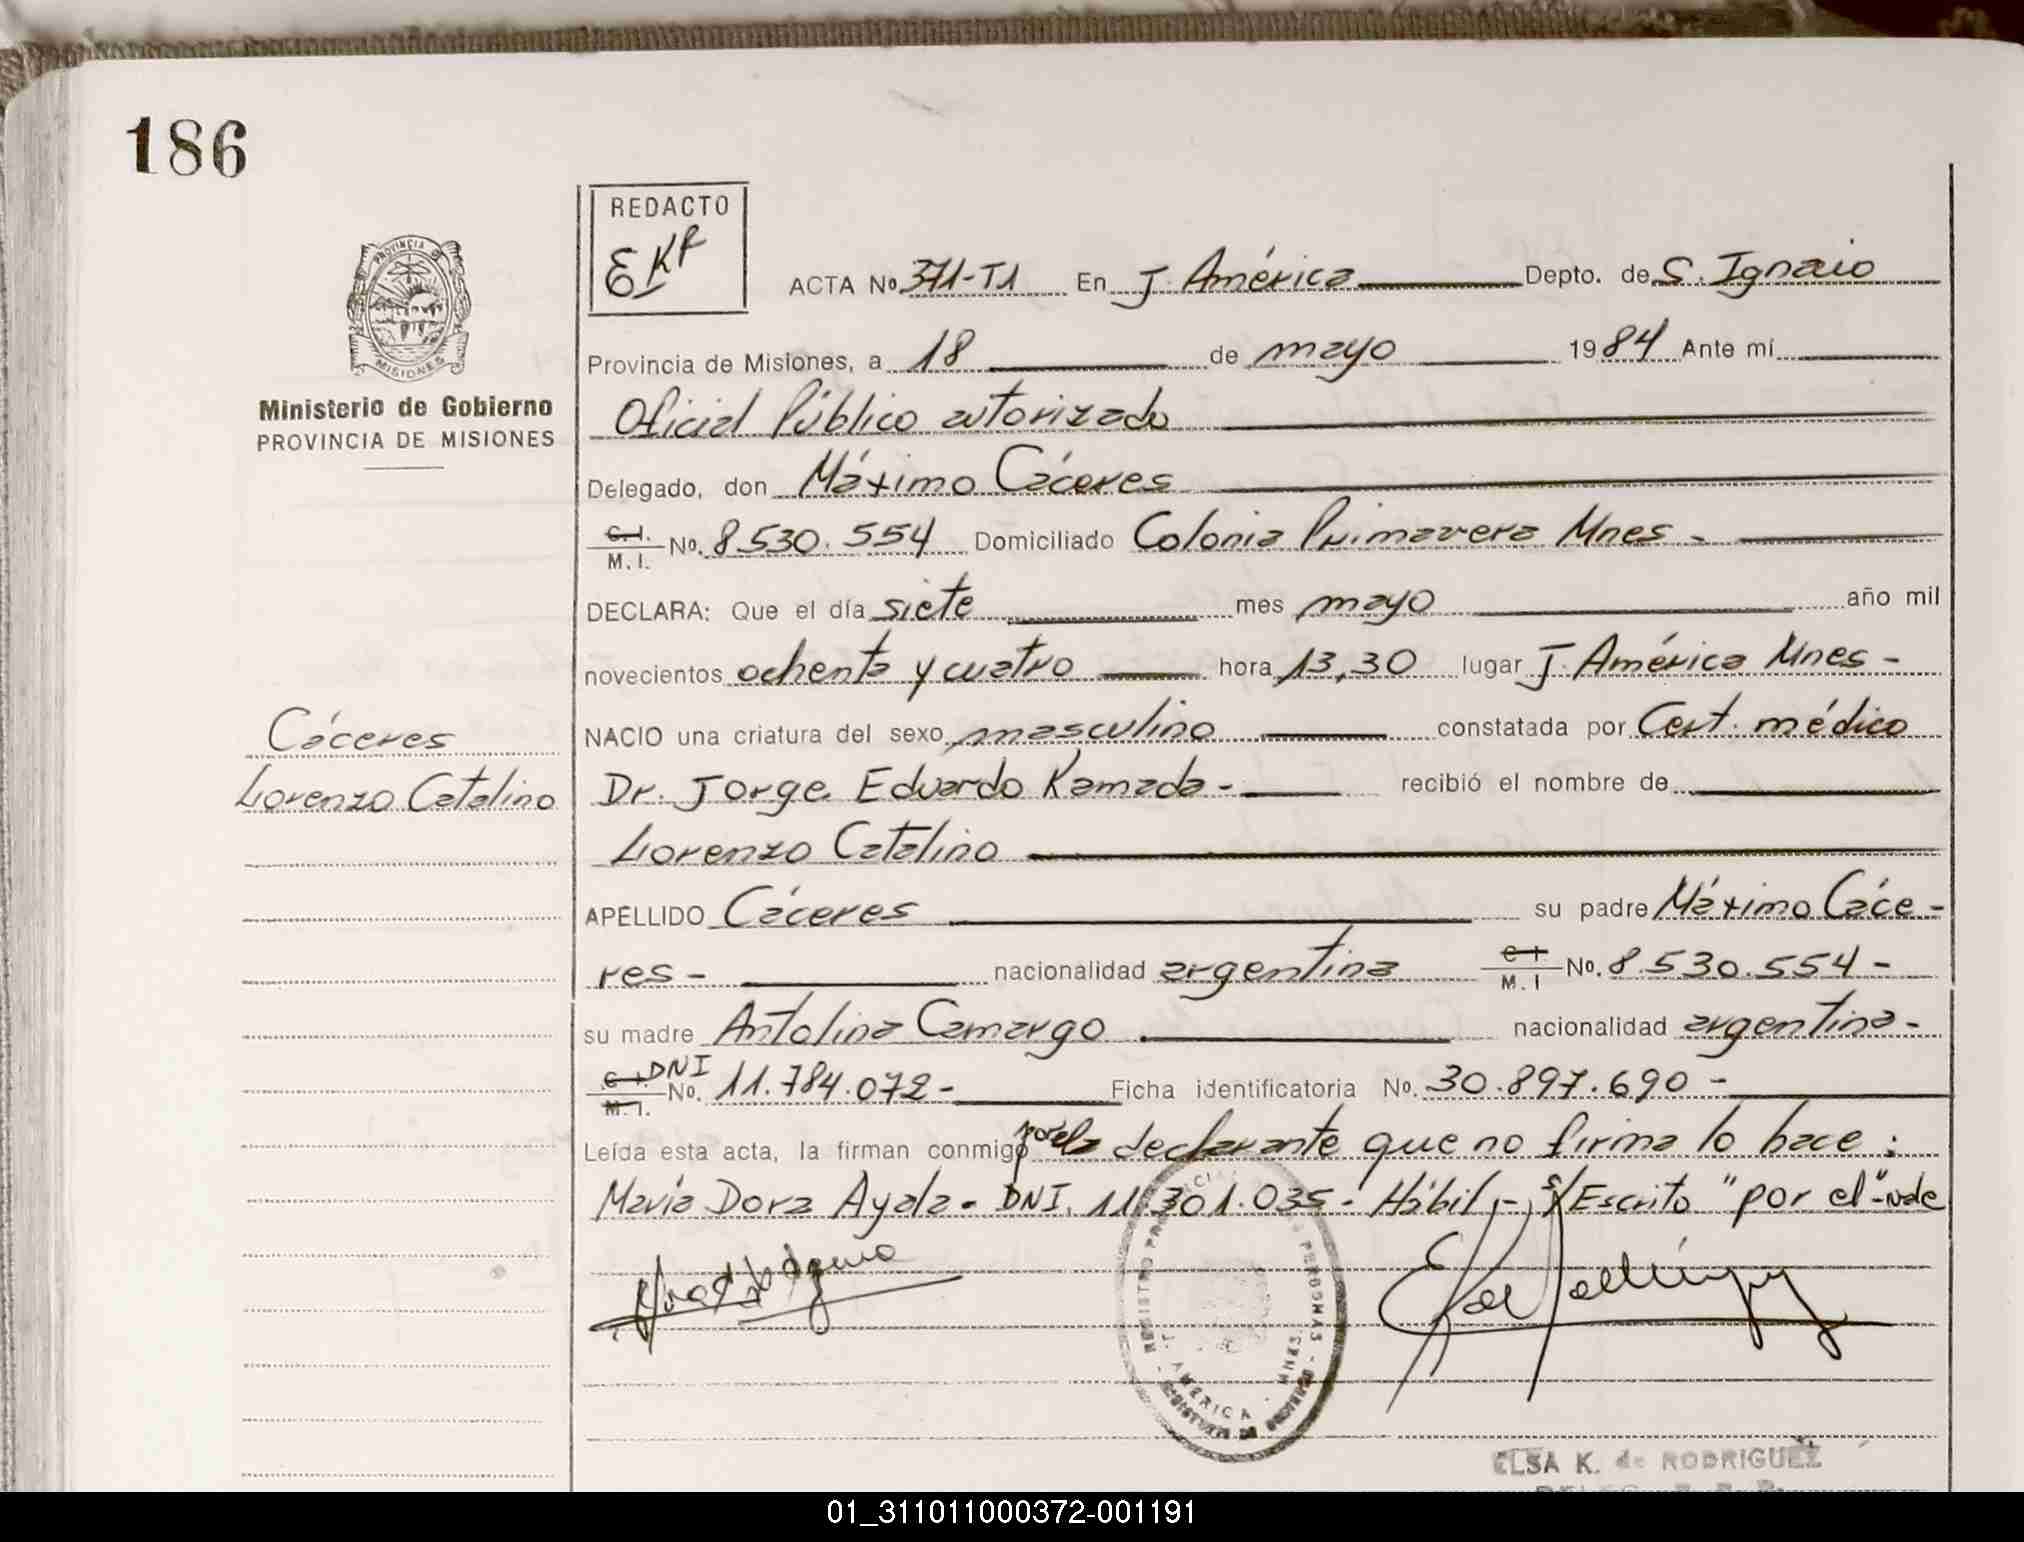 186
REDACTO
EKR
PROVINCIA DE
MISIONES
Ministerio de Gobierno
PROVINCIA DE MISIONES
ACTA No 371-T1 En J. América Depto. de S. Ignaio
Provincia de Misiones, a 18 de mayo 1984 Ante mí
Oficial Público autorizado
Delegado, don Máximo Cáceres
C.I. M.I. No. 8.530.554 Domiciliado Colonia Primavera Mnes -
DECLARA: Que el día siete mes mayo año mil
novecientos ochenta y cuatro hora 13,30 lugar J. América Mnes -
NACIO una criatura del sexo masculino constatada por Cert. médico
Cáceres
Lorenzo Catalino
Dr. Jorge Eduardo Kamada - recibió el nombre de
Lorenzo Catalino
APELLIDO Cáceres su padre Máximo Cáce-
res - nacionalidad argentina C.I. M.I. No. 8.530.554 -
su madre Antolina Camargo nacionalidad argentina -
C.I. M.I. DNI No. 11.784.072 - Ficha identificatoria No. 30.897.690 -
Leída esta acta, la firman conmigo por el declarante que no firma lo hace:
María Dora Ayala - DNI. 11.301.035 - Hábil, - s/Escrito "por el" - vale
REGISTRO PERSONAS
AMERICA - MNES.
ELSA K. de RODRIGUEZ
01_311011000372-001191